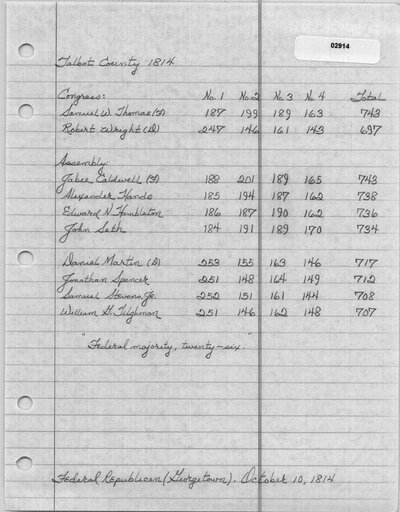 02914
Talbot County 1814
Congress: No. 1 No. 2 No. 3 No. 4 Total
Samuel W. Thomas (F) 187 199 189 163 743
Robert Wright (D) 247 146 161 143 697
Assembly:
Jabez Caldwell (F) 188 201 189 165 743
Alexander Hands 185 194 187 162 738
Edward N. Hambleton 186 187 190 162 736
John Seth 184 191 189 170 734
Daniel Martin (D) 253 155 163 146 717
Jonathan Spencer 251 148 164 149 712
Samuel Stevens Jr. 252 151 161 144 708
William G. Tilghman 251 146 162 148 707
"Federal majority, twenty-six."
Federal Republican (Georgetown). October 10, 1814